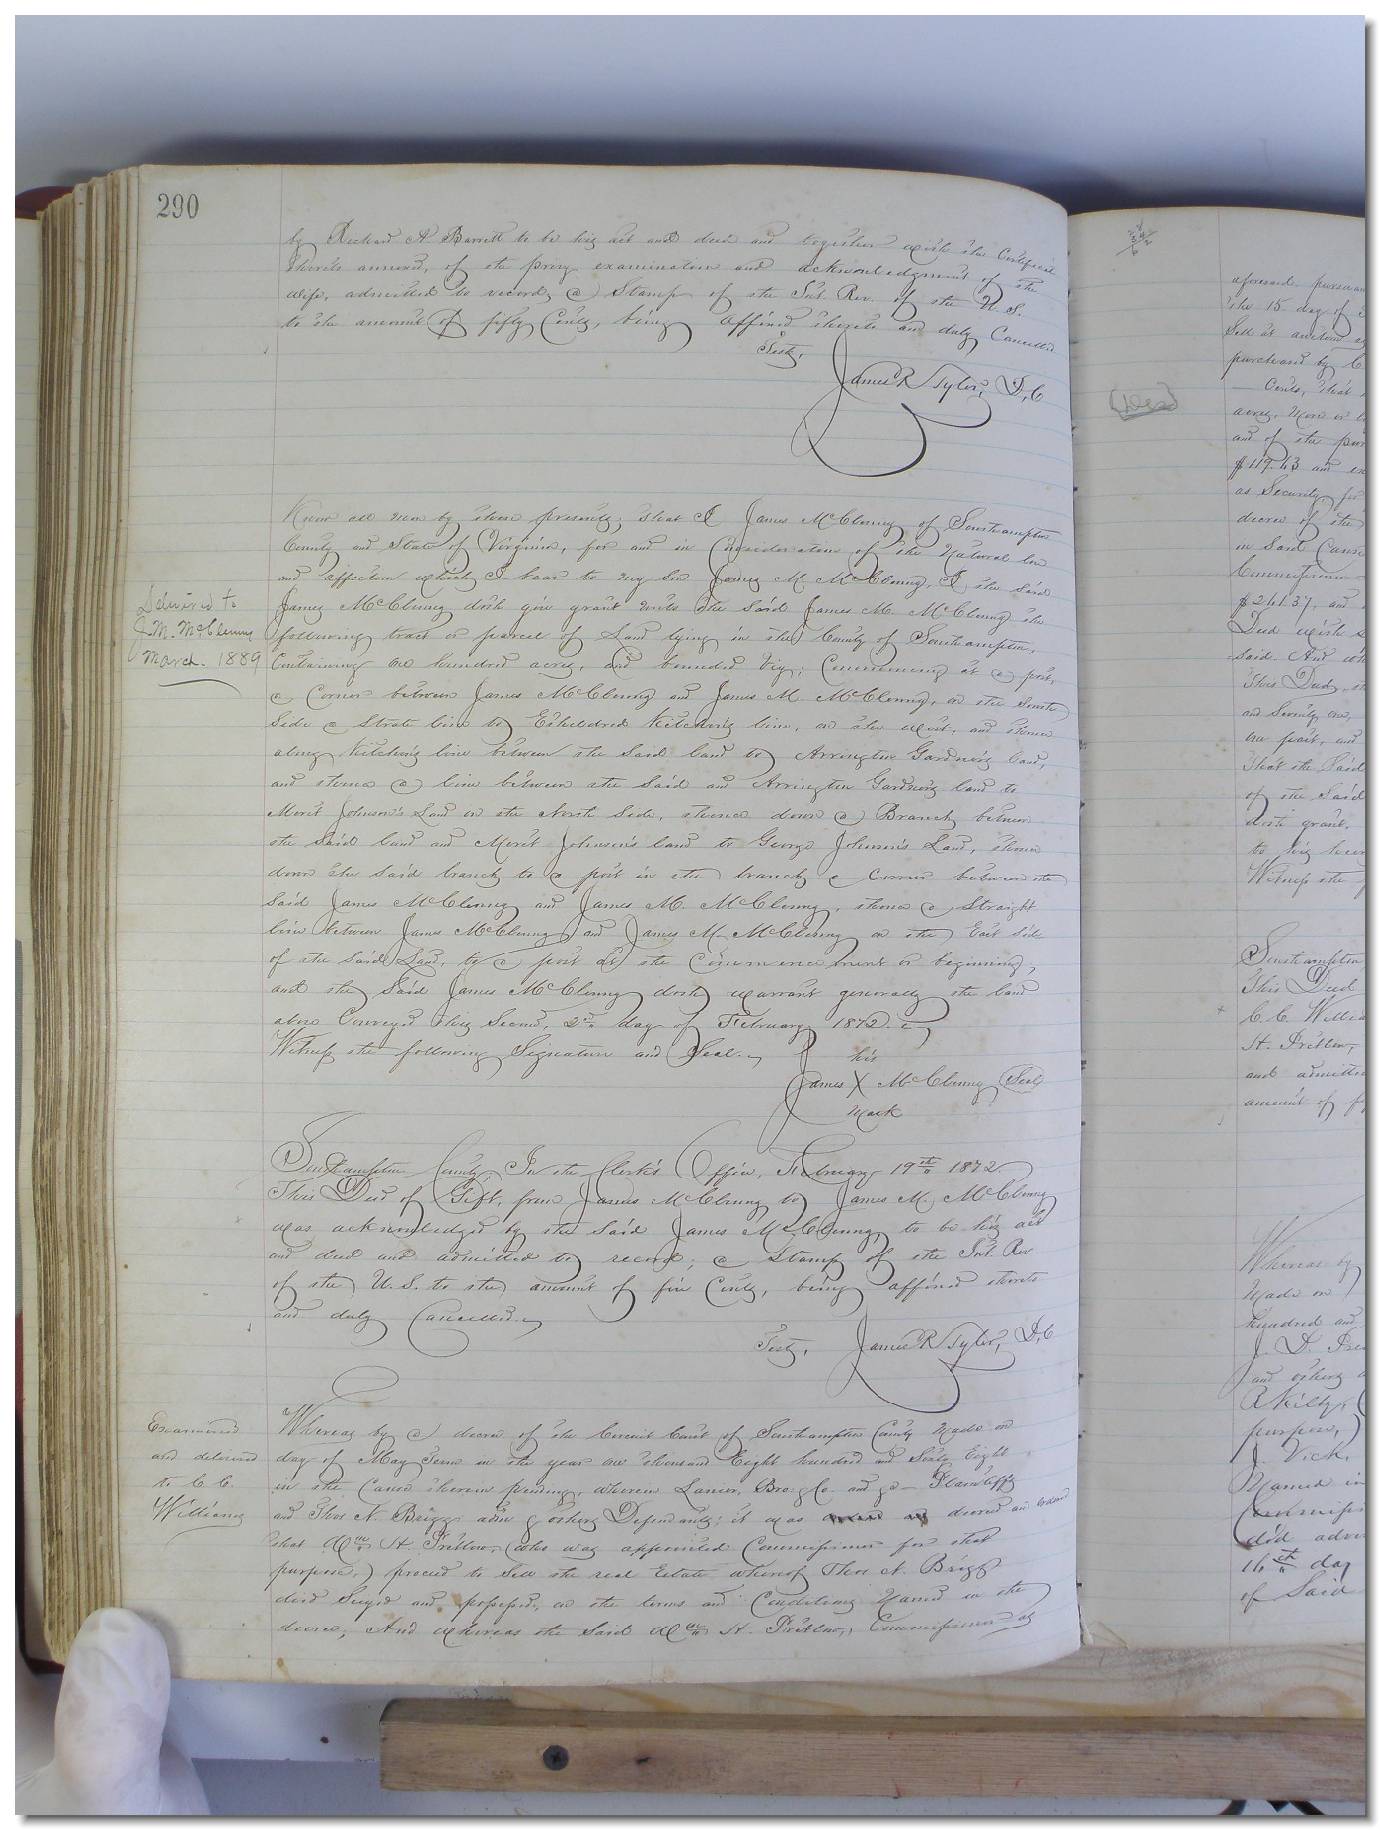 290
by Richard A Barrett to be his act and deed and together with the Certificate
thereto annexed, of the privy examination and acknowledgment of the
wife, admitted to record, a Stamp of the Int. Rev. of the U.S.
to the amount of fifty Cents, being affixed thereto and duly Cancelled
Teste,
James R Tyler, D,C
Know all men by these presents, that I James McClenny of Southampton
County and State of Virginia, for and in Consideration of the Natural love
and affection which I bear to my Son James M. McClenny, I the said
James McClenny doth give grant unto the said James M. McClenny the
following tract or parcel of Land lying in the County of Southampton,
Containing one hundred acres, and bounded viz; Commencing at a post,
a Corner between James McClenny and James M. McClenny, on the South
Side a Strate line to Etheldred Kitchen's line, on the West, and thence
along Kitchen's line between the said land to Arrington Gardner's land,
and thence a line between the said and Arrington Gardner's land to
Merit Johnson's Land on the North Side, thence down a Branch between
the said land and Merit Johnson's land to George Johnson's Land, thence
down the said branch to a post in the branch a Corner between the
said James McClenny and James M. McClenny, thence a Straight
line between James McClenny and James M. McClenny on the East side
of the said Land, to a post at the Commencement or beginning,
and the said James McClenny doth warrant generally the land
above Conveyed this Second, 2nd day of February 1872.
Witness the following Signature and Seal.
his
James X McClenny (Seal)
mark
Delivered to
J. M. McClenny
March. 1889
Southampton County, In the Clerk's Office, February 19th 1872.
This Deed of Gift, from James McClenny to James M. McClenny
was acknowledged by the said James McClenny, to be his act
and deed and admitted to record; a Stamp of the Int. Rev
of the U.S. to the amount of five Cents, being affixed thereto
and duly Cancelled.
Teste, James R Tyler, D,C
Examined
and delivered
to C. C.
Williams
Whereas by a decree of the Circuit Court of Southampton County made on
day of May Term in the year one thousand Eight hundred and Sixty Eight
in the Cause therein pending, wherein Lanier, Bro: & Co- and &c- Plaintiffs
and Thos N. Briggs adm & others Defendants; it was decreed and ordered
that Wm H. Pretlow, (who was appointed Commissioner for that
purpose,) proceed to Sell the real Estate whereof Thos N. Briggs
died Seized and possessed, on the terms and Conditions Named in the
decree; And whereas the said Wm H. Pretlow, Commissioner as
aforesaid pursuan
the 15 day of
Sell at auction
purchased by C
Cents, that
acres, more or l
and of the pur
$119.43 and
as Security for
decree of the
in Said Cause
Commissioner
$241.37, and
Deed with
said. And wh
This Deed,
and Seventy one,
one part, and
That the Said
of the Said
doth grant,
to his heirs
Witness the
Southampton
This Deed
C. C. Willia
H. Pretlow,
and admitte
amount of f
Whereas by
made on
hundred and
J. D. Pre
and others
purpose,
J. Vick,
Named in
Commission
did adver
16th day
of Said